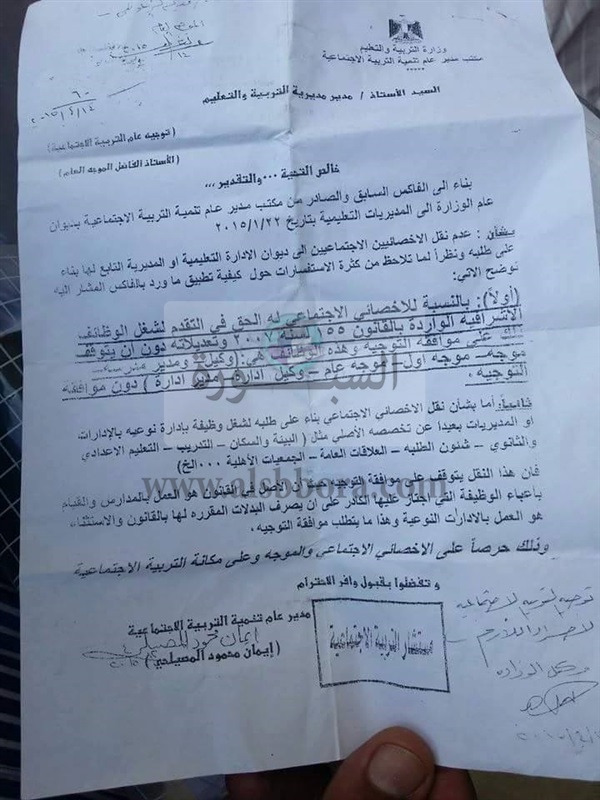 وزارة التربية والتعليم
مكتب مدير عام تنمية التربية الاجتماعية
*****
السيد الأستاذ / مدير مديرية التربية والتعليم
٢٠١٥/٤/١٤
( توجيه عام التربية الاجتماعية )
( الأستاذ الفاضل الموجه العام )
خالص التحية ،،، والتقدير ،،،
بناء الى الفاكس السابق والصادر من مكتب مدير عام تنمية التربية الاجتماعية بديوان
عام الوزارة الى المديريات التعليمية بتاريخ ٢٠١٥/١/٢٢
بشأن : عدم نقل الاخصائيين الاجتماعيين الى ديوان الادارة التعليمية او المديرية التابع لها بناء
على طلبه ونظراً لما تلاحظ من كثرة الاستفسارات حول كيفية تطبيق ما ورد بالفاكس المشار اليه
نوضح الاتي:
(أولاً): بالنسبة للاخصائي الاجتماعي له الحق في التقدم لشغل الوظائف
الاشرافية الواردة بالقانون ١٥٥ لسنه ٢٠٠٧ وتعديلاته دون ان يتوقف
ذلك على موافقة التوجيه وهذه الوظائف هي:(وكيل – ومدير مدرسه –
موجه – موجه اول – موجه عام – وكيل ادارة – مدير ادارة ) دون موافقة
التوجيه .
ثانيا: أما بشأن نقل الاخصائي الاجتماعي بناء على طلبه لشغل وظيفة بإدارة نوعيه بالإدارات
او المديريات بعيدا عن تخصصه الأصلي مثل ( البيئة والسكان – التدريب – التعليم الاعدادي
والثانوي – شئون الطلبه – العلاقات العامة – الجمعيات الأهلية ...الخ)
فان هذا النقل يتوقف على موافقة التوجيه حيث ان الأصل في القانون هو العمل بالمدارس والقيام
بأعباء الوظيفة التي اختار عليها الكادر على ان يصرف البدلات المقرره لها بالقانون والاستثناء
هو العمل بالادارات النوعية وهذا ما يتطلب موافقة التوجيه.
وذلك حرصاً على الاخصائي الاجتماعي والموجه وعلى مكانة التربية الاجتماعية
وتفضلوا بقبول وافر الاحترام
مدير عام تنمية التربية الاجتماعية
( إيمان محمود المصيلحي )
مستشار التربية الاجتماعية
وكيل الوزاره
السبورة
www.alsbbora.com